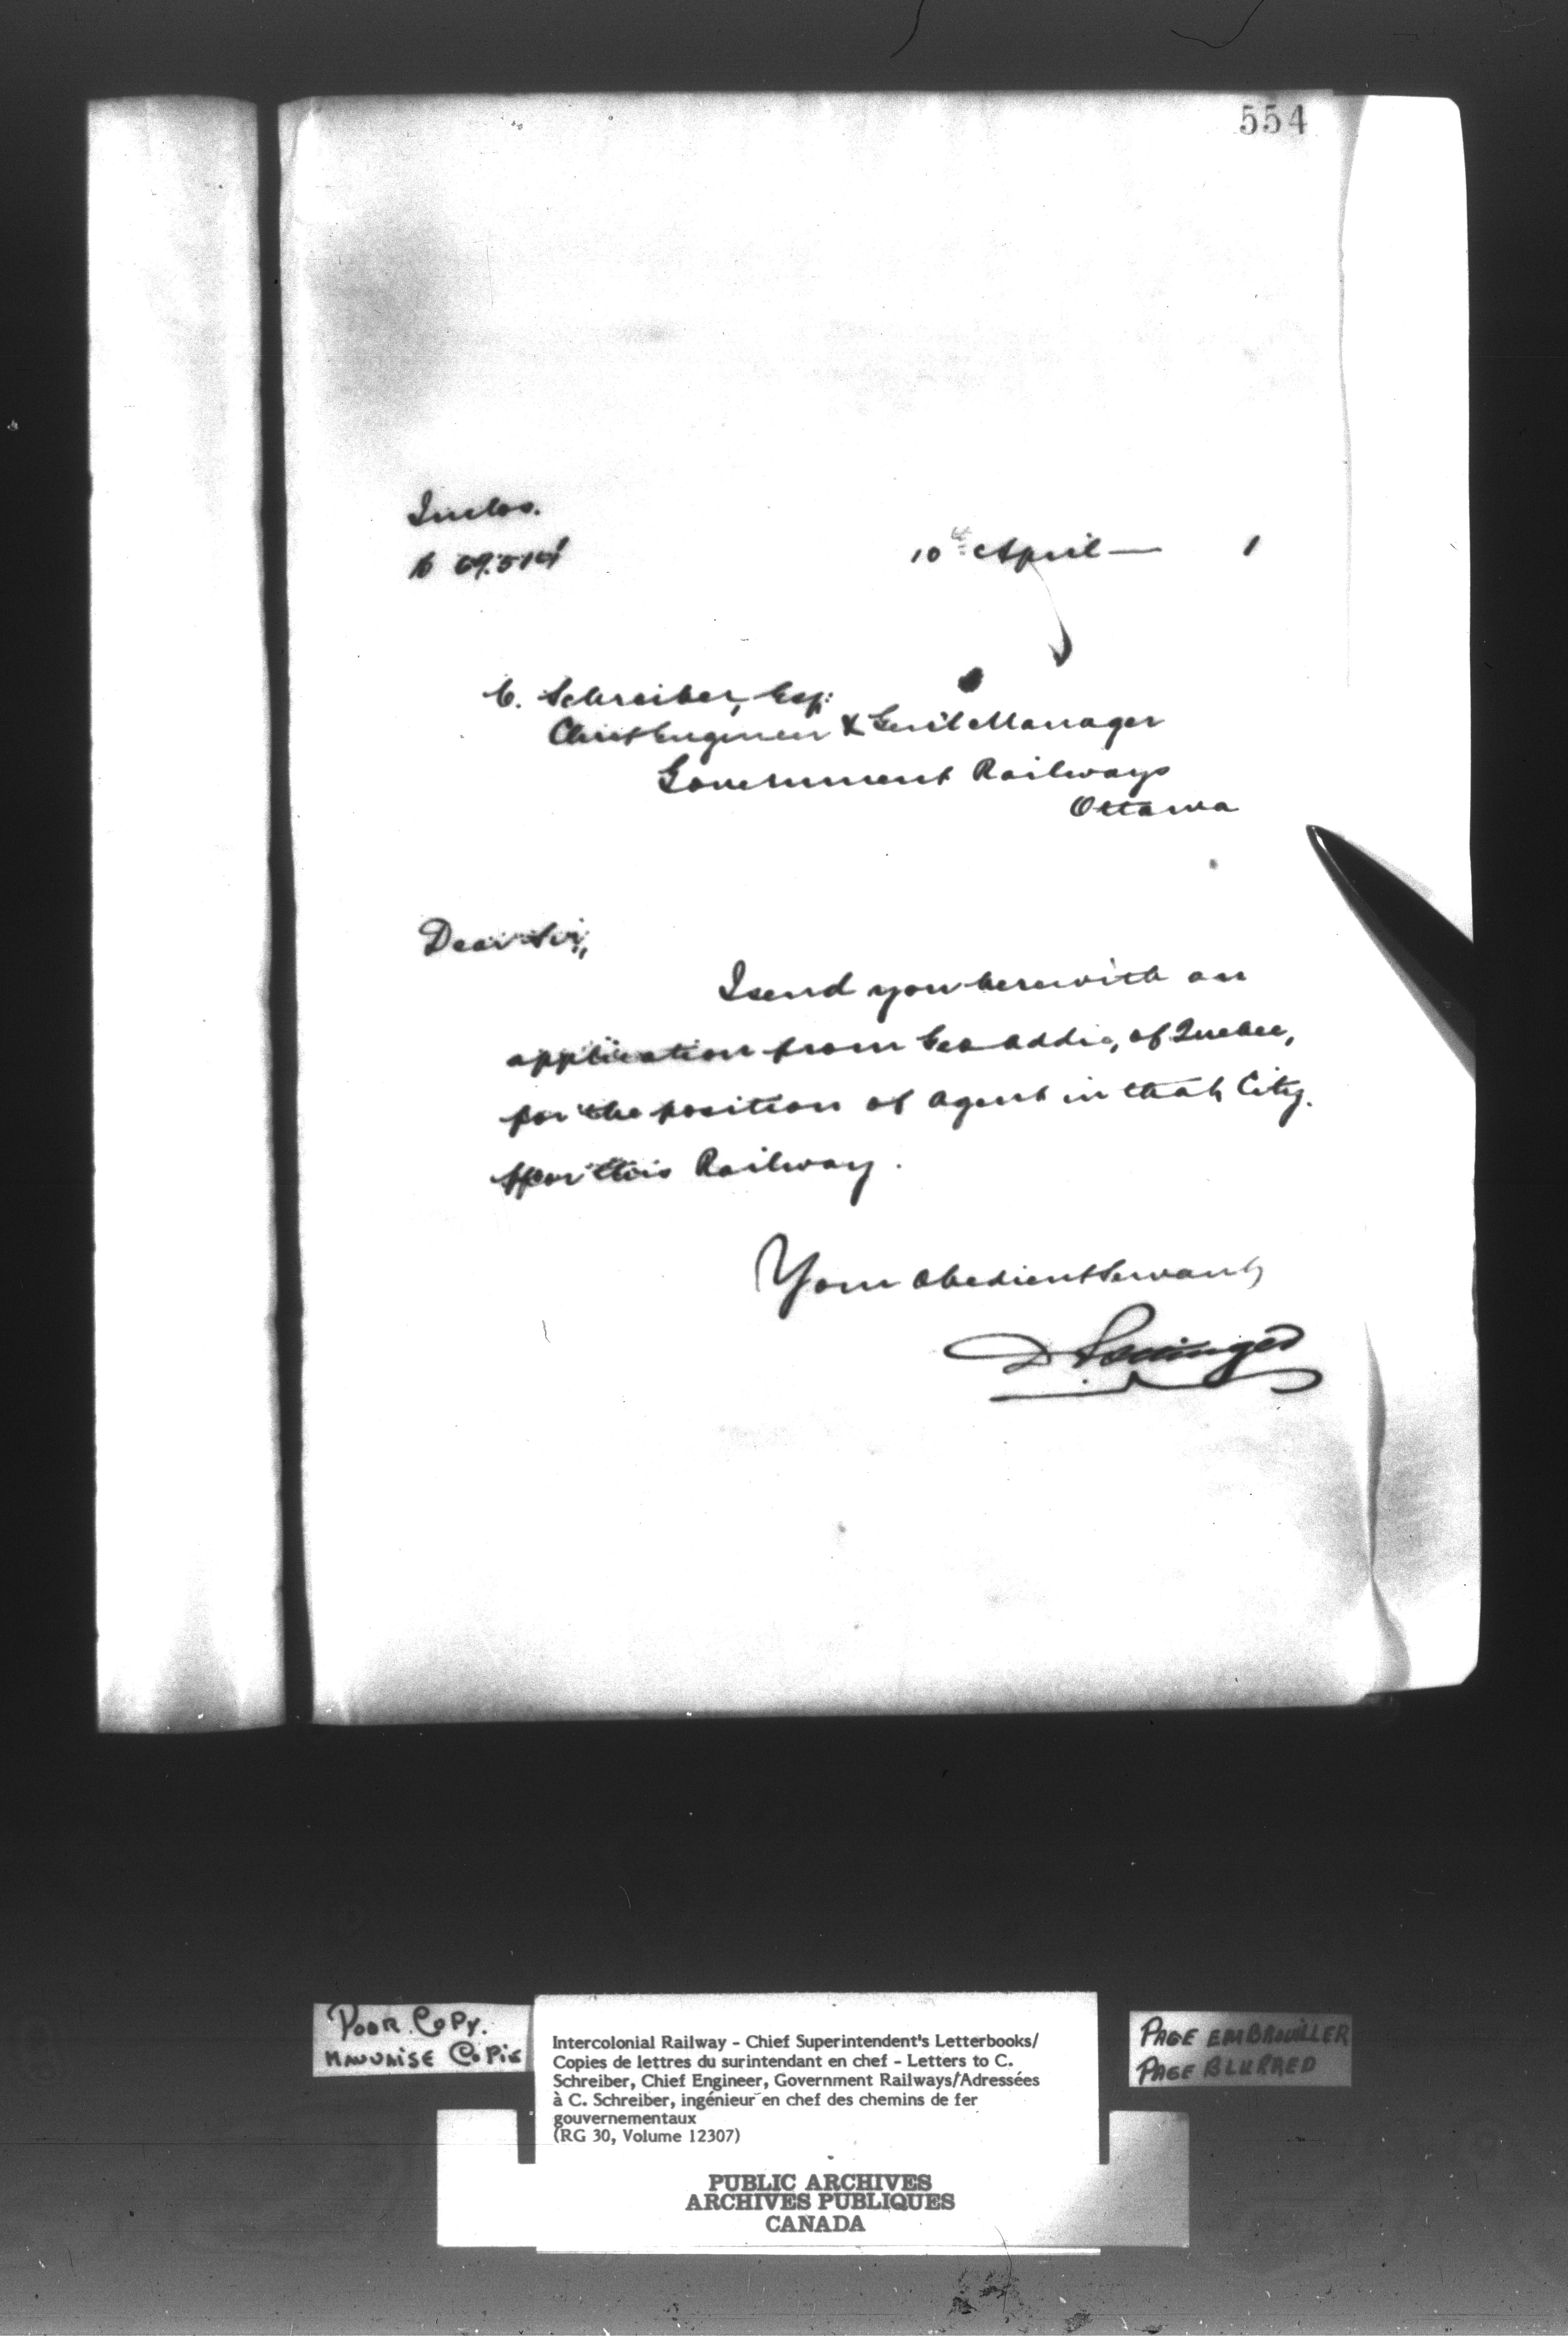 554
Inclos.
10th April — 1
C. Schreiber, Esq:
Chief Engineer & Gen'l Manager
Government Railways
Ottawa
Dear Sir,
I send you herewith an
application from Geo Addie, of Quebec,
for the position of agent in that City.
for this Railway.
Your obedient Servant,
D Pottinger
POOR COPY.
MAUVAISE COPIE
Intercolonial Railway - Chief Superintendent's Letterbooks/
Copies de lettres du surintendant en chef - Letters to C.
Schreiber, Chief Engineer, Government Railways/Adressées
à C. Schreiber, ingénieur en chef des chemins de fer
gouvernementaux
(RG 30, Volume 12307)
PAGE EMBROUILLER
PAGE BLURRED
PUBLIC ARCHIVES
ARCHIVES PUBLIQUES
CANADA